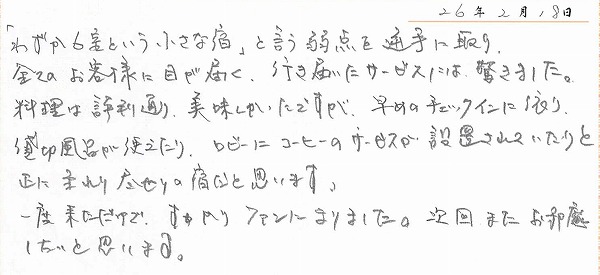 26年2月18日
「わずか6室という小さな宿」と言う弱点を逆手に取り、
全てのお客様に目が届く、行き届いたサービスには驚きました。
料理は評判通り、美味しかったですが、早めのチェックインに依り、
貸切風呂が使えたり、ロビーにコーヒーのサービスが設置されていたりと
正に至れり尽せりの宿だと思います。
一度来ただけで、すっかりファンになりました。次回またお邪魔
したいと思います。